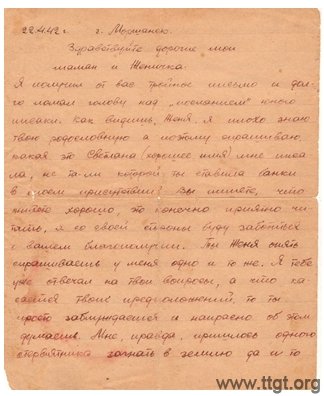 22.4.42 г. г. Моршанск.
Здравствуйте дорогие мои
маман и Женичка.
Я получил от вас тройное письмо и дол-
го ломал голову над „посланием" юного
писаки. Как видишь, Женя, я плохо знаю
твою родословную а поэтому спрашиваю
какая это Светлана (хорошее имя) мне писа
ла, не та-ли которой ты ставила банки
в моем присутствии? Вы пишете, что
живете хорошо, это конечно приятно чи-
тать, я со своей стороны буду заботиться
о вашем благополучии. Ты Женя опять
спрашиваешь у меня одно и то же. Я тебе
уже отвечал на твои вопросы, а что ка
сается твоих предположений, то ты
просто заблуждаешься и напрасно об этом
думаешь. Мне, правда, пришлось одного
стервятника загнать в землю да и то
www.ttgt.org